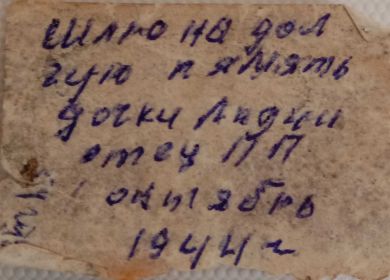 шлю на дол
гую память
дочки Лидии
отец ПП
октябрь
1944 г